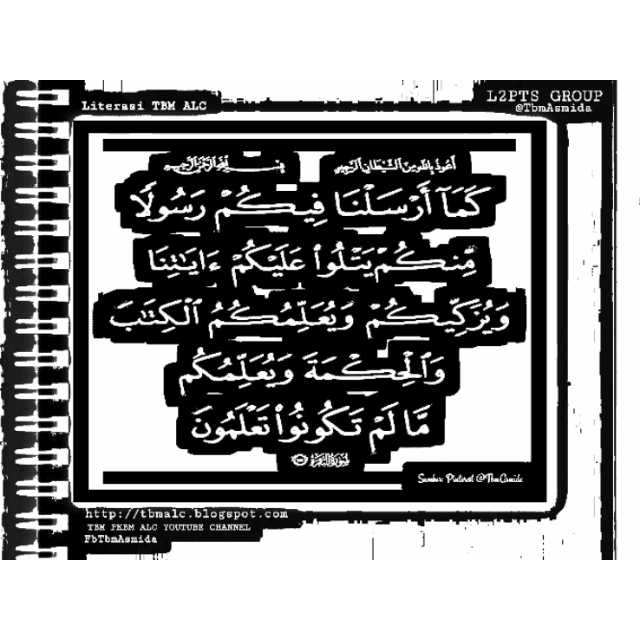 Literasi TBM ALC
L2PTS GROUP
@TbmAsmida
أعوذ بالله من الشيطان الرجيم بسم الله الرحمن الرحيم
كَمَآ أَرْسَلْنَا فِيكُمْ رَسُولًا
مِّنكُمْ يَتْلُوا۟ عَلَيْكُمْ ءَايَـٰتِنَا
وَيُزَكِّيكُمْ وَيُعَلِّمُكُمُ ٱلْكِتَـٰبَ
وَٱلْحِكْمَةَ وَيُعَلِّمُكُم
مَّا لَمْ تَكُونُوا۟ تَعْلَمُونَ
سورة البقرة
Sumber Pinterest @TbmAsmida
http://tbmalc.blogspot.com
TBM PKBM ALC YOUTUBE CHANNEL
FbTbmAsmida